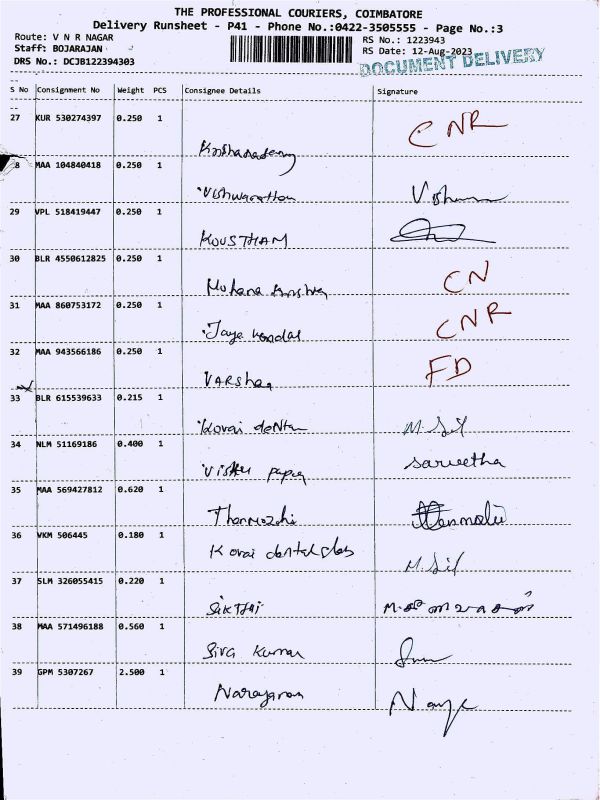 THE PROFESSIONAL COURIERS, COIMBATORE
Delivery Runsheet - P41 - Phone No.:0422-3505555 - Page No.:3
Route: V N R NAGAR RS No.: 1223943
Staff: BOJARAJAN RS Date: 12-Aug-2023
DRS No.: DCJB122394303 DOCUMENT DELIVERY
S No Consignment No Weight PCS Consignee Details Signature
27 KUR 530274397 0.250 1 CNR
8 MAA 104840418 0.250 1
29 VPL 518419447 0.250 1 KOUSTHAM
30 BLR 4550612825 0.250 1 CN
31 MAA 860753172 0.250 1 CNR
32 MAA 943566186 0.250 1 FD
33 BLR 615539633 0.215 1 Kovai
34 NLM 51169186 0.400 1 sarveetha
35 MAA 569427812 0.620 1
36 VKM 506445 0.180 1 Kovai dental
37 SLM 326055415 0.220 1 SAKTHI
38 MAA 571496188 0.560 1 Siva Kumar
39 GPM 5307267 2.500 1 Narayanan